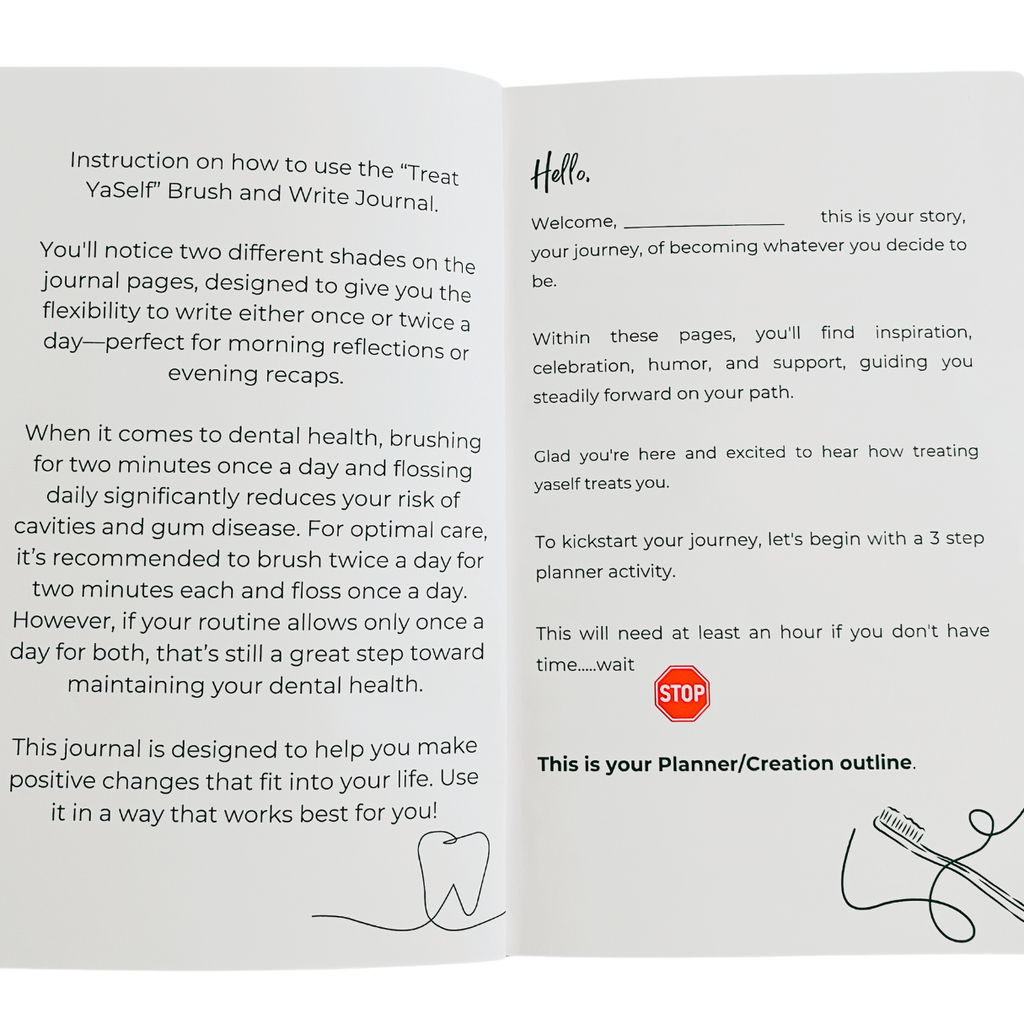 Instruction on how to use the “Treat
YaSelf” Brush and Write Journal.
You'll notice two different shades on the
journal pages, designed to give you the
flexibility to write either once or twice a
day—perfect for morning reflections or
evening recaps.
When it comes to dental health, brushing
for two minutes once a day and flossing
daily significantly reduces your risk of
cavities and gum disease. For optimal care,
it’s recommended to brush twice a day for
two minutes each and floss once a day.
However, if your routine allows only once a
day for both, that’s still a great step toward
maintaining your dental health.
This journal is designed to help you make
positive changes that fit into your life. Use
it in a way that works best for you!
Hello,
Welcome, ________________ this is your story,
your journey, of becoming whatever you decide to
be.
Within these pages, you'll find inspiration,
celebration, humor, and support, guiding you
steadily forward on your path.
Glad you're here and excited to hear how treating
yaself treats you.
To kickstart your journey, let's begin with a 3 step
planner activity.
This will need at least an hour if you don't have
time.....wait
STOP
This is your Planner/Creation outline.